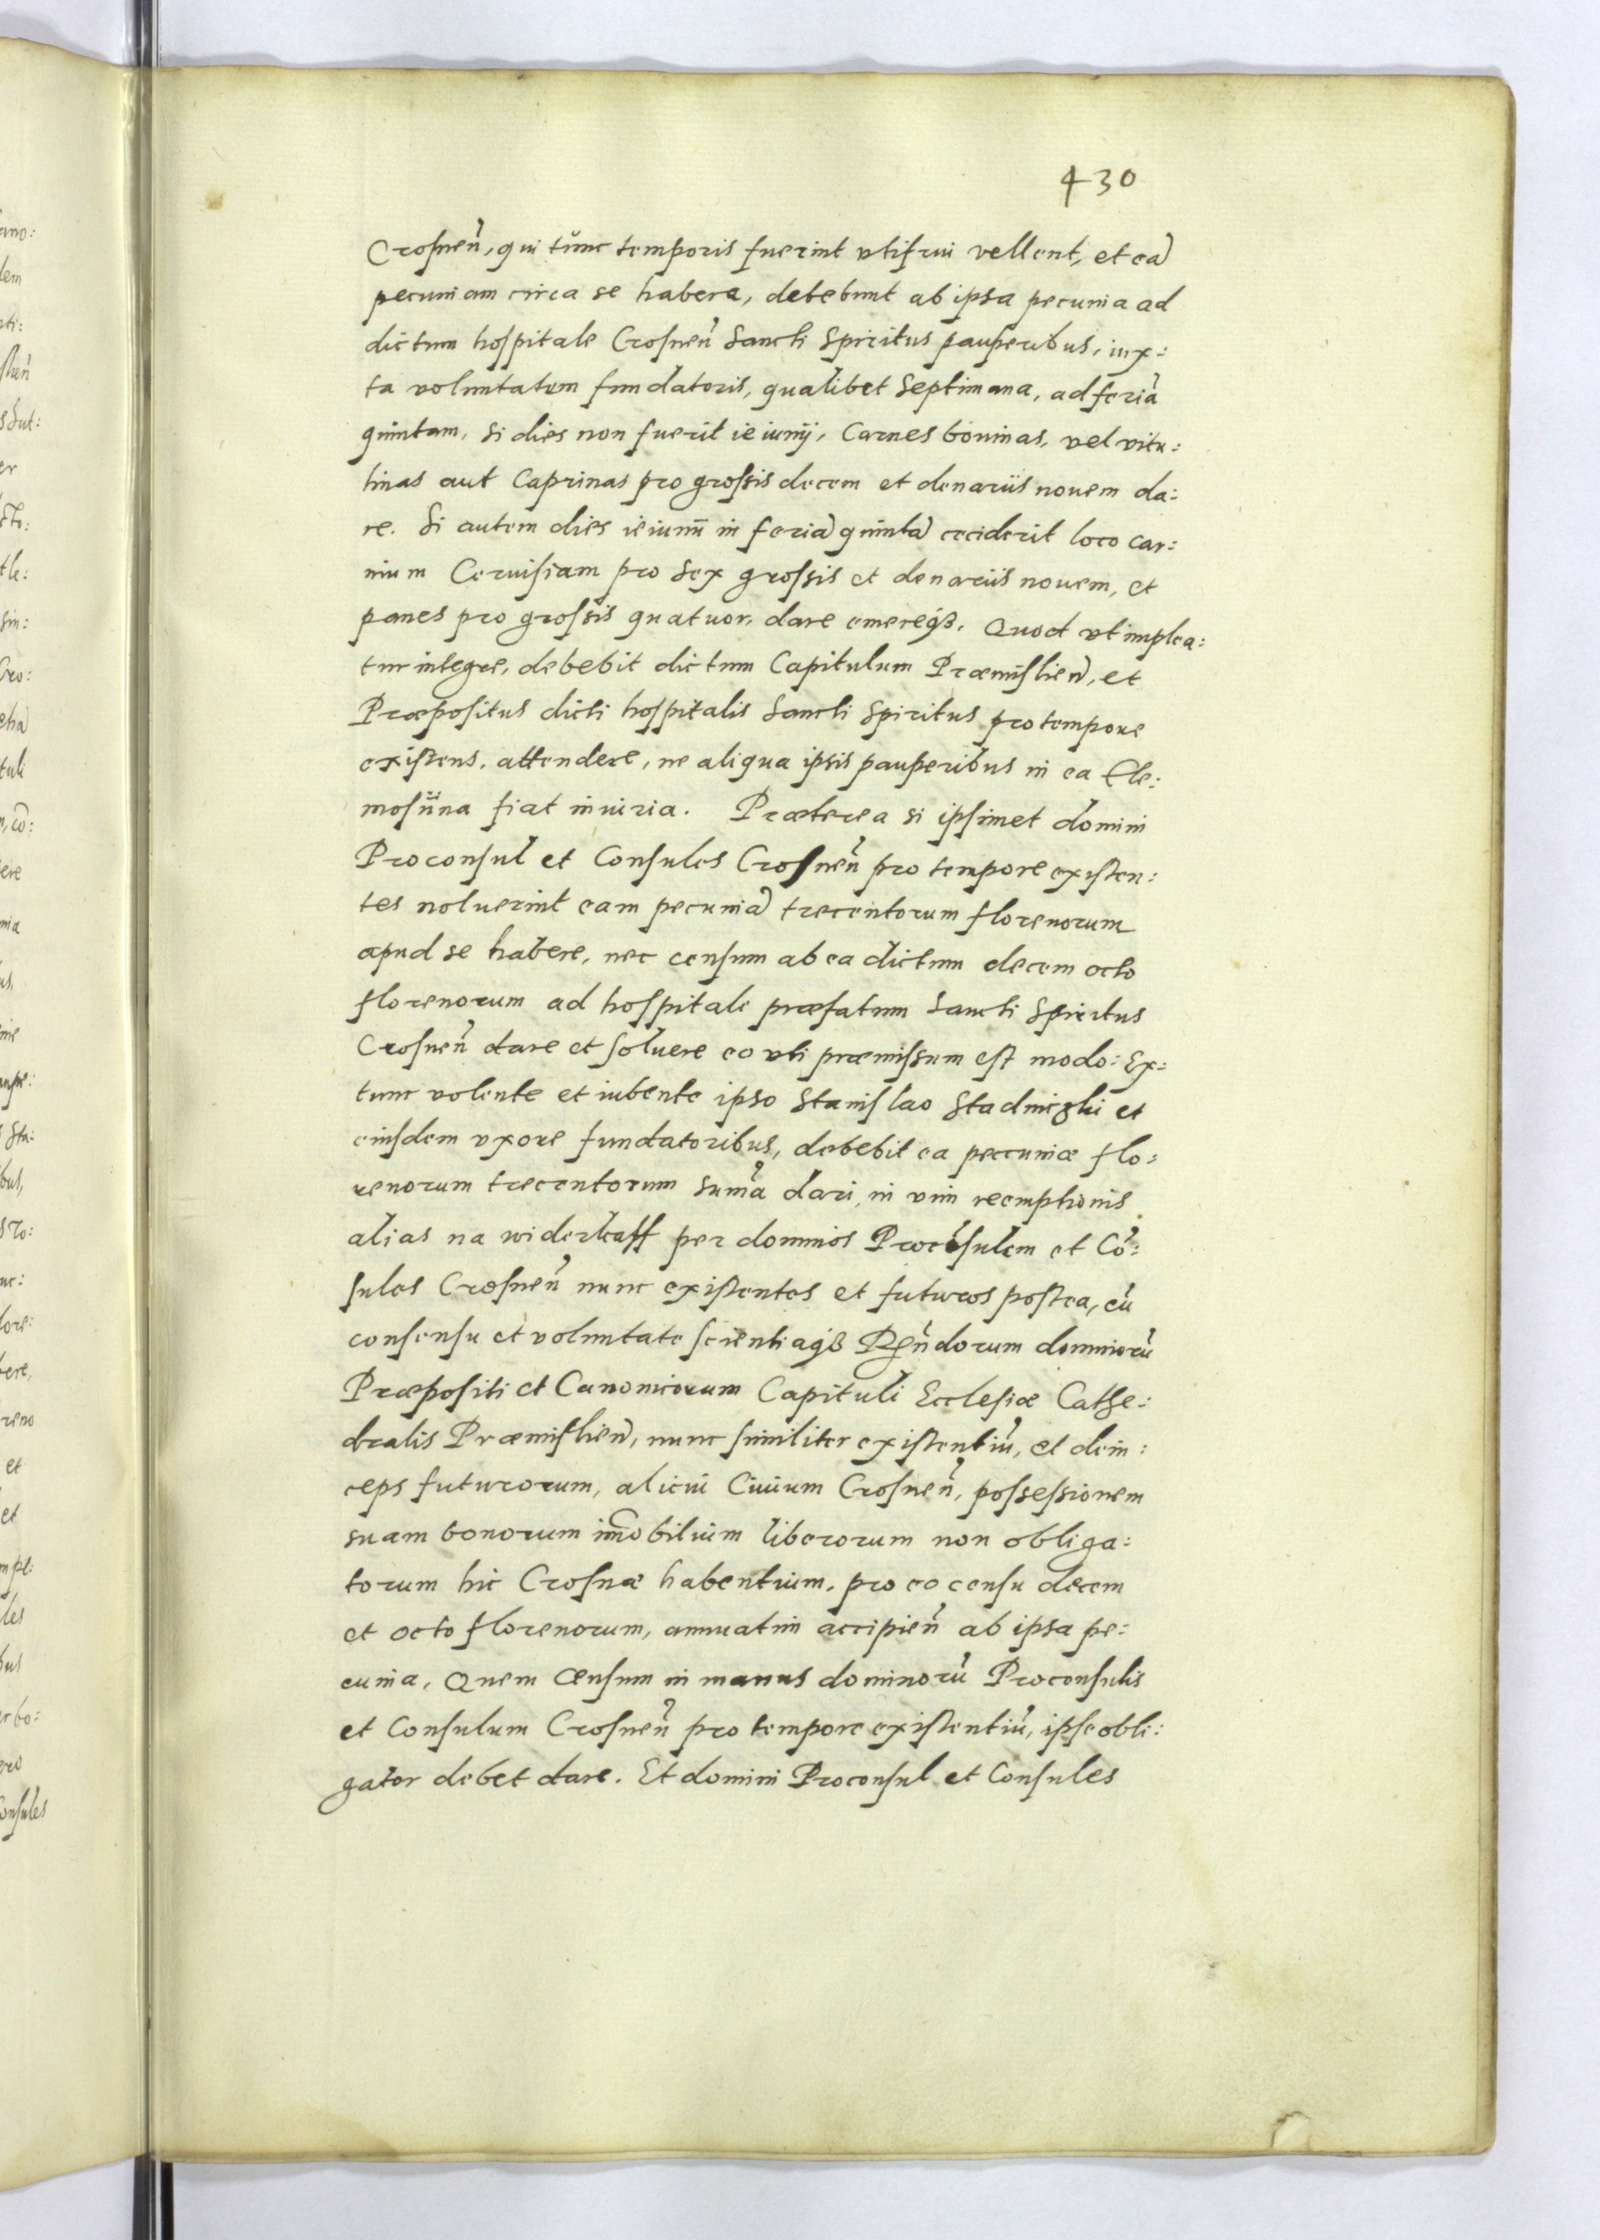 430
Crosnen̄, qui tŭnc temporis fuerint vtifrui vellent, et eā
pecuniam circa se habere, debebunt ab ipsa pecunia ad
dictum hospitale Crosnen̄ Sancti Spiritus pauperibus, iux:
ta voluntatem fundatoris, qualibet Septimana, ad feriā
quintam, si dies non fuerit ieiunij, Carnes bouinas, vel vitu:
linas aut Caprinas pro grossis decem et denariis nouem da:
re. Si autem dies ieiunii in feriā quintā ceciderit loco car:
nium Ceruisiam pro Sex grossis et denariis nouem, et
panes pro grossis quatuor, dare emereqꝫ. Quod vt implea:
tur integre, debebit dictum Capitulum Præmislien̄, et
Præpositus dicti hospitalis Sancti Spiritus pro tempore
existens, attendere, ne aliqua ipsis pauperibus in ea Ele:
mosÿna fiat iniuria. Præterea si ipsimet domini
Proconsul et Consules Crosnen̄ pro tempore existen:
tes noluerint eam pecuniā trecentorum florenorum
apud se habere, nec censum ab ea dictum decem octo
florenorum ad hospitale præfatum Sancti Spiritus
Crosnen̄ dare et soluere eo vti præmissum est modo: Ex:
tunc volente et iubente ipso Stanislao Stadniczki et
eiusdem vxore fundatoribus, debebit ea pecuniæ flo:
renorum trecentorum sum̄a dari, in vim reemptionis
alias na widerkaff per dominos Procōsulem et Cō:
sules Crosnen̄ nunc existentes et futuros postea, cū
consensu et voluntate scientiaqꝫ Rn̄dorum dominorū
Præpositi et Canonicorum Capituli Ecclesiæ Cathe:
dralis Præmislien̄, nunc similiter existentiū, et dein:
ceps futurorum, alicui Ciuium Crosnen̄, possessionem
suam bonorum im̄obilium liberorum non obliga:
torum hic Crosnæ habentium, pro eo censu decem
et octo florenorum, annuatim accipien̄ ab ipsa pe:
cunia, Quem Censum in manus dominorū Proconsulis
et Consulum Crosnen̄ pro tempore existentiū, ipse obli:
gator debet dare. Et domini Proconsul et Consules